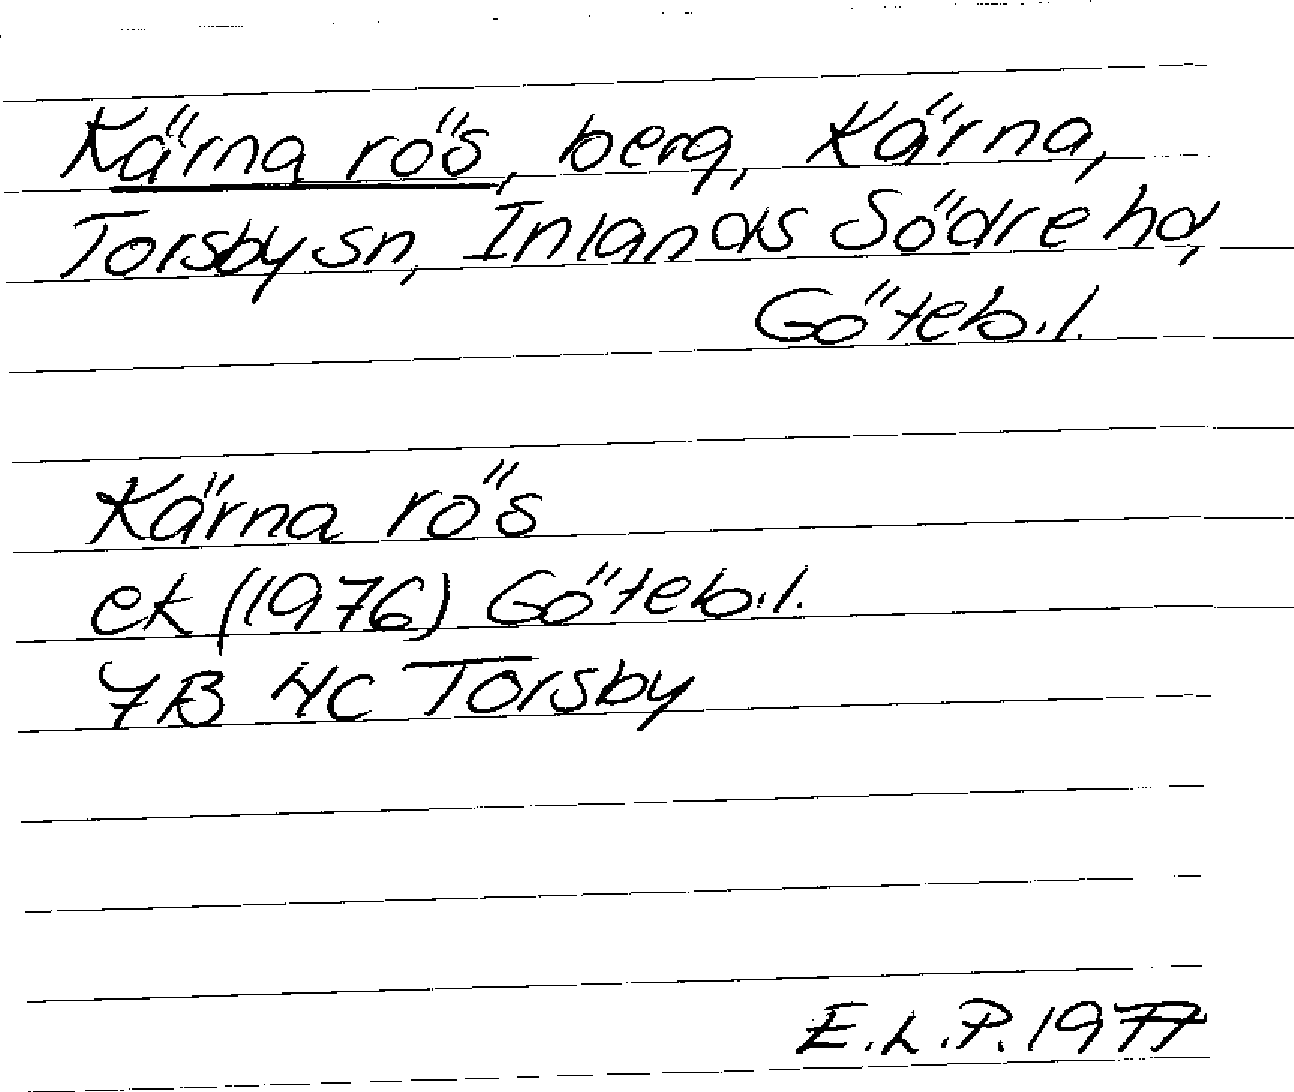 Kärna rös, berg, Kärna,
Torsby sn, Inlands Södre hd,
Göteb.l.
Kärna rös
ek (1976) Göteb.l.
7B 4C Torsby
E.L.P. 1977